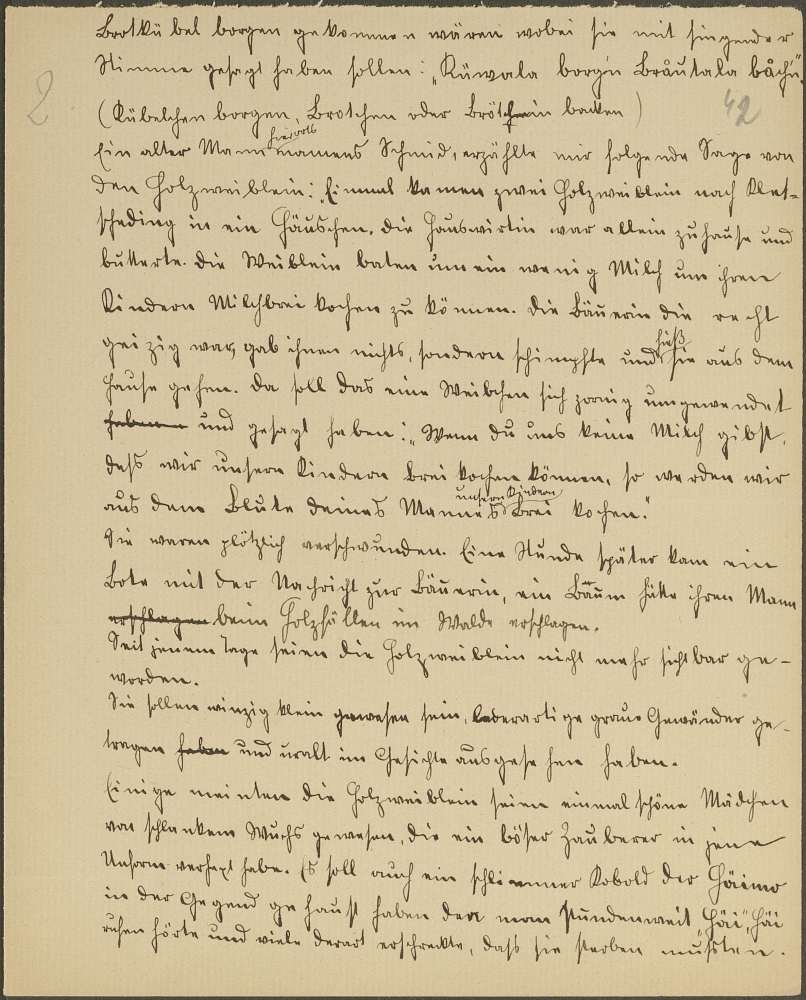 Brotkübel borgen gekommen wären wobei sie mit singender
Stimme gesagt haben sollen: „Küwala borg'n Bråutala båch'n"
2 (Kübelchen borgen, Brotchen oder Brötchein backen) 42
Ein alter Mann namens Schmid, erzählte mir folgende Sage von
den Holzweiblein: „Einmal kamen zwei Holzweiblein nach Klet-
scheding in ein Häuschen. Die Hauswirtin war allein zuhause und
butterte. Die Weiblein baten um ein wenig Milch um ihren
Kindern Milchbrei kochen zu können. Die Bäuerin die recht
geizig war, gab ihnen nichts, sondern schimpfte und hieß sie aus dem
Hause gehen. Da soll das eine Weibchen sich zornig umgewendet
haben und gesagt haben: „Wenn du uns keine Milch gibst,
daß wir unsern Kindern Brei kochen können, so werden wir
aus dem Blute deines Mannes unsern Kindern Brei kochen."
Sie waren plötzlich verschwunden. Eine Stunde später kam ein
Bote mit der Nachricht zur Bäuerin, ein Baum hätte ihren Mann
erschlagen beim Holzfällen im Walde erschlagen.
Seit jenem Tage seien die Holzweiblein nicht mehr sichtbar ge-
worden.
Sie sollen winzig klein gewesen sein, lederartige graue Gewänder ge-
tragen haben und uralt im Gesichte ausgesehen haben.
Einige meinten die Holzweiblein seien einmal schöne Mädchen
von schlankem Wuchs gewesen, die ein böser Zauberer in jene
Unform verhext habe. Es soll auch ein schlimmer Kobold der Häimo
in der Gegend gehaust haben den man stundenweit „Häi", „Häi
rufen hörte und viele derart erschreckte, daß sie sterben mußten.